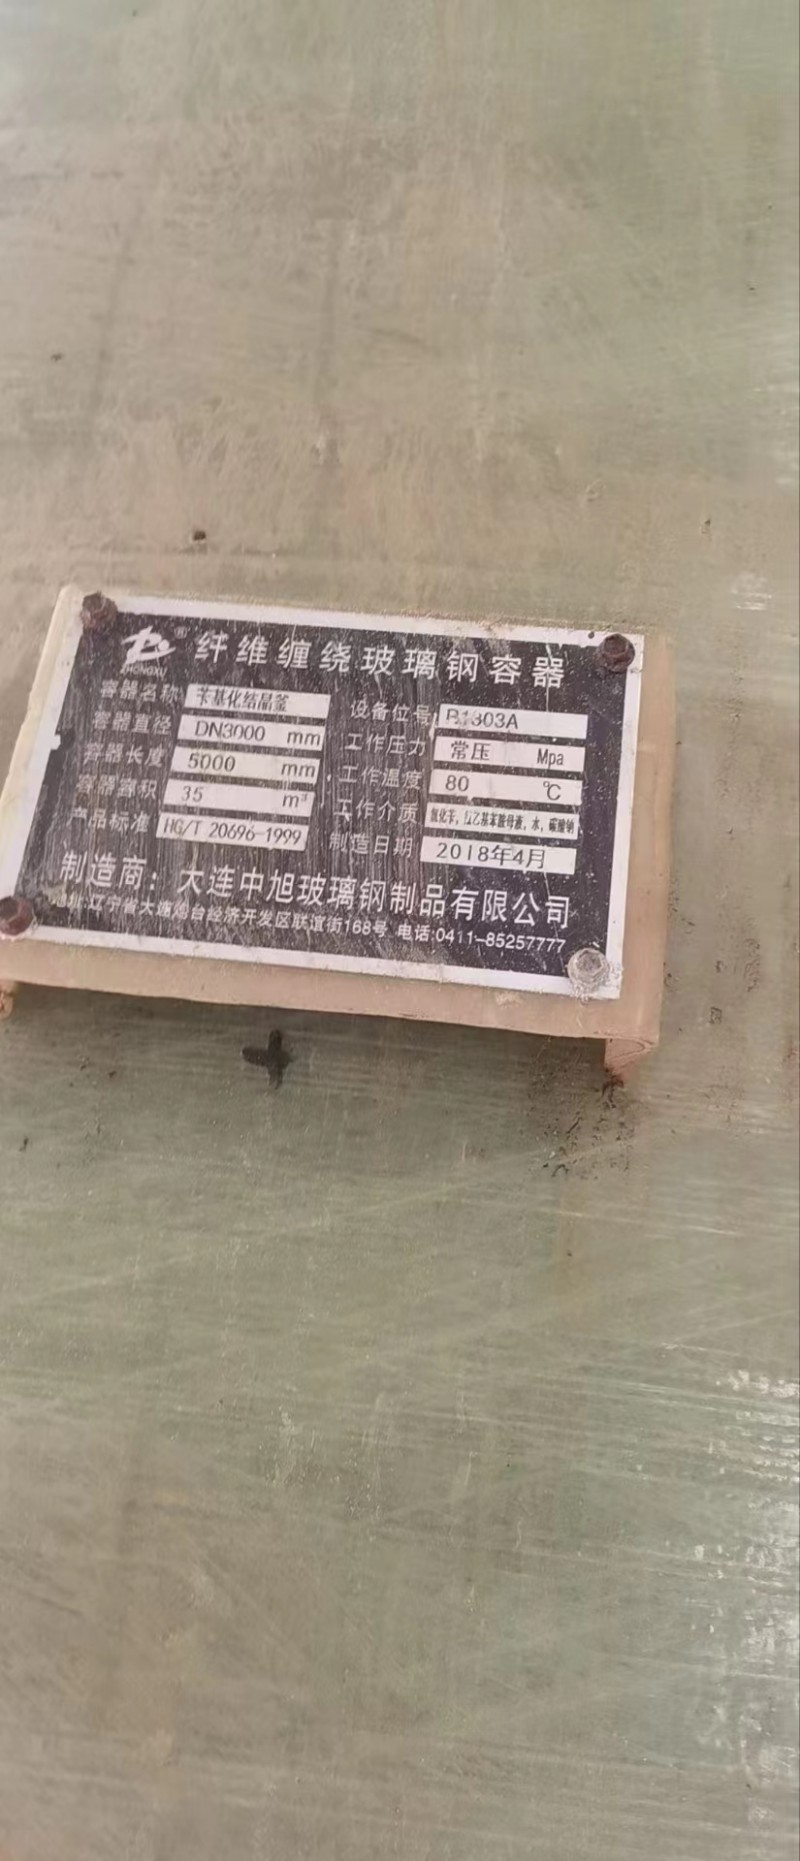 ZHONGXU ® 纤维缠绕玻璃钢容器
容器名称 苄基化结晶釜 设备位号 R1303A
容器直径 DN3000 mm 工作压力 常压 Mpa
容器长度 5000 mm 工作温度 80 ℃
容器容积 35 m³ 工作介质 氯化苄, 乙基苯胺母液, 水, 碳酸钠
产品标准 HG/T 20696-1999 制造日期 2018年4月
制造商: 大连中旭玻璃钢制品有限公司
地址:辽宁省大连 台经济开发区联谊街168号 电话:0411-85257777